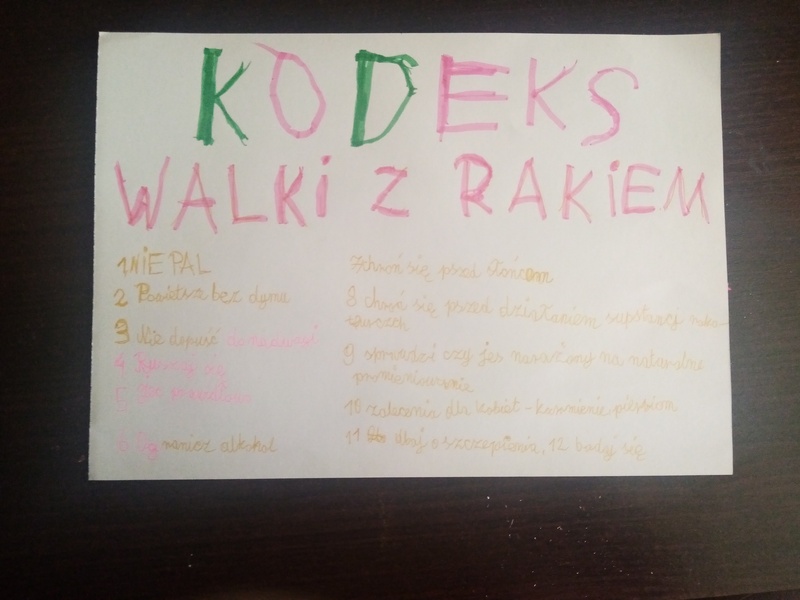 KODEKS
WALKI Z RAKIEM
1 NIE PAL
2 Powietsze bez dymu
3 Nie dopuść do nadwagi
4 Ruszaj się
5
6 Og ranicz alkohol
7 chroń się pszed słońcem
8 chroń się pszed działaniem supstancji rako-
twuczch
9 sprawdzić czy jes narażony na naturalne
promieniowanie
10 zalecenia dla kobiet - karmienie piersiom
11 dbaj o szczepienia, 12 badaj się